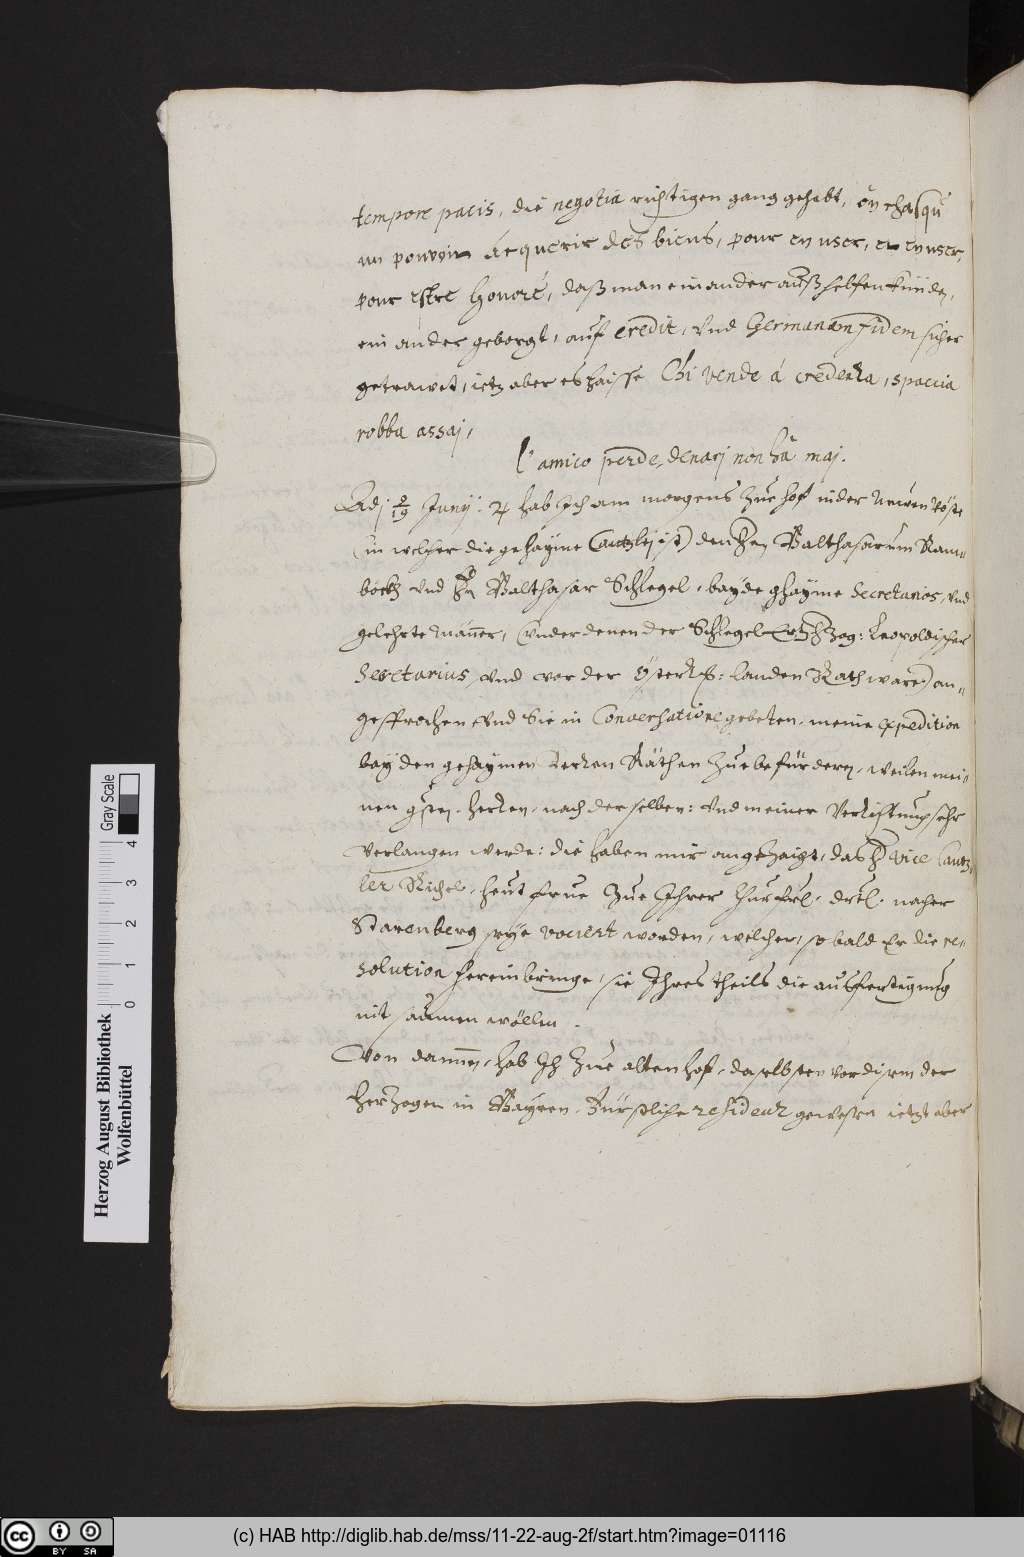 tempore pacis, die negotia richtigen gang gehabt, oú chasqu'
un pouvoir acquerir des biens, pour en user, en user,
pour estre honoré, daß man einander außhelffen künden,
ein ander geborgt, auf credit, vnd Germanam fidem sicher
getrawet, ietz aber es haisse Chi vende á credenza, spaccia
robba assaj,
l'amico perde, denarj non há maj.
Adj 9/19 Junij. ♃ hab Ich am morgens Zue hof in der Newen Veste
(in welcher die gehayme Cantzlej ist) den Hn Balthasarum Ram=
böckh vnd Hn Balthasar Schlegel, bayde ghayme Secretarios, vnd
gelehrte Männer, (vnder denen der Schlegel Ertzherzog: Leopoldischer
Secretarius, vnd vor der Österr: landen Rath ware) an=
gesprochen vnd Sie in Conversatione gebeten, meine expedition
bayden gehaymen Herren Räthen Zue befürderen, weilen mei=
nen gsten. Herren, nach derselben: vnd meiner Verrichtung sehr
verlangen werde: die haben mir angezaigt, das H Vice Cantz=
ler Richel, heut frue Zue Ihrer Churfrl. drtl. nacher
Starenberg seye vociert worden, welcher, so bald Er die re=
solution hereinbringe, sie Ihres theils die außfertigung
nit saumen wöllen.
Von dannen, hab Ich Zue alten hof, daselbsten vor disem der
Herzogen in Bayren, Fürstliche residenz gewesen ietzt aber
Herzog August Bibliothek
Wolfenbüttel
Gray Scale
0 1 2 3 4
cc BY SA
(c) HAB http://diglib.hab.de/mss/11-22-aug-2f/start.htm?image=01116